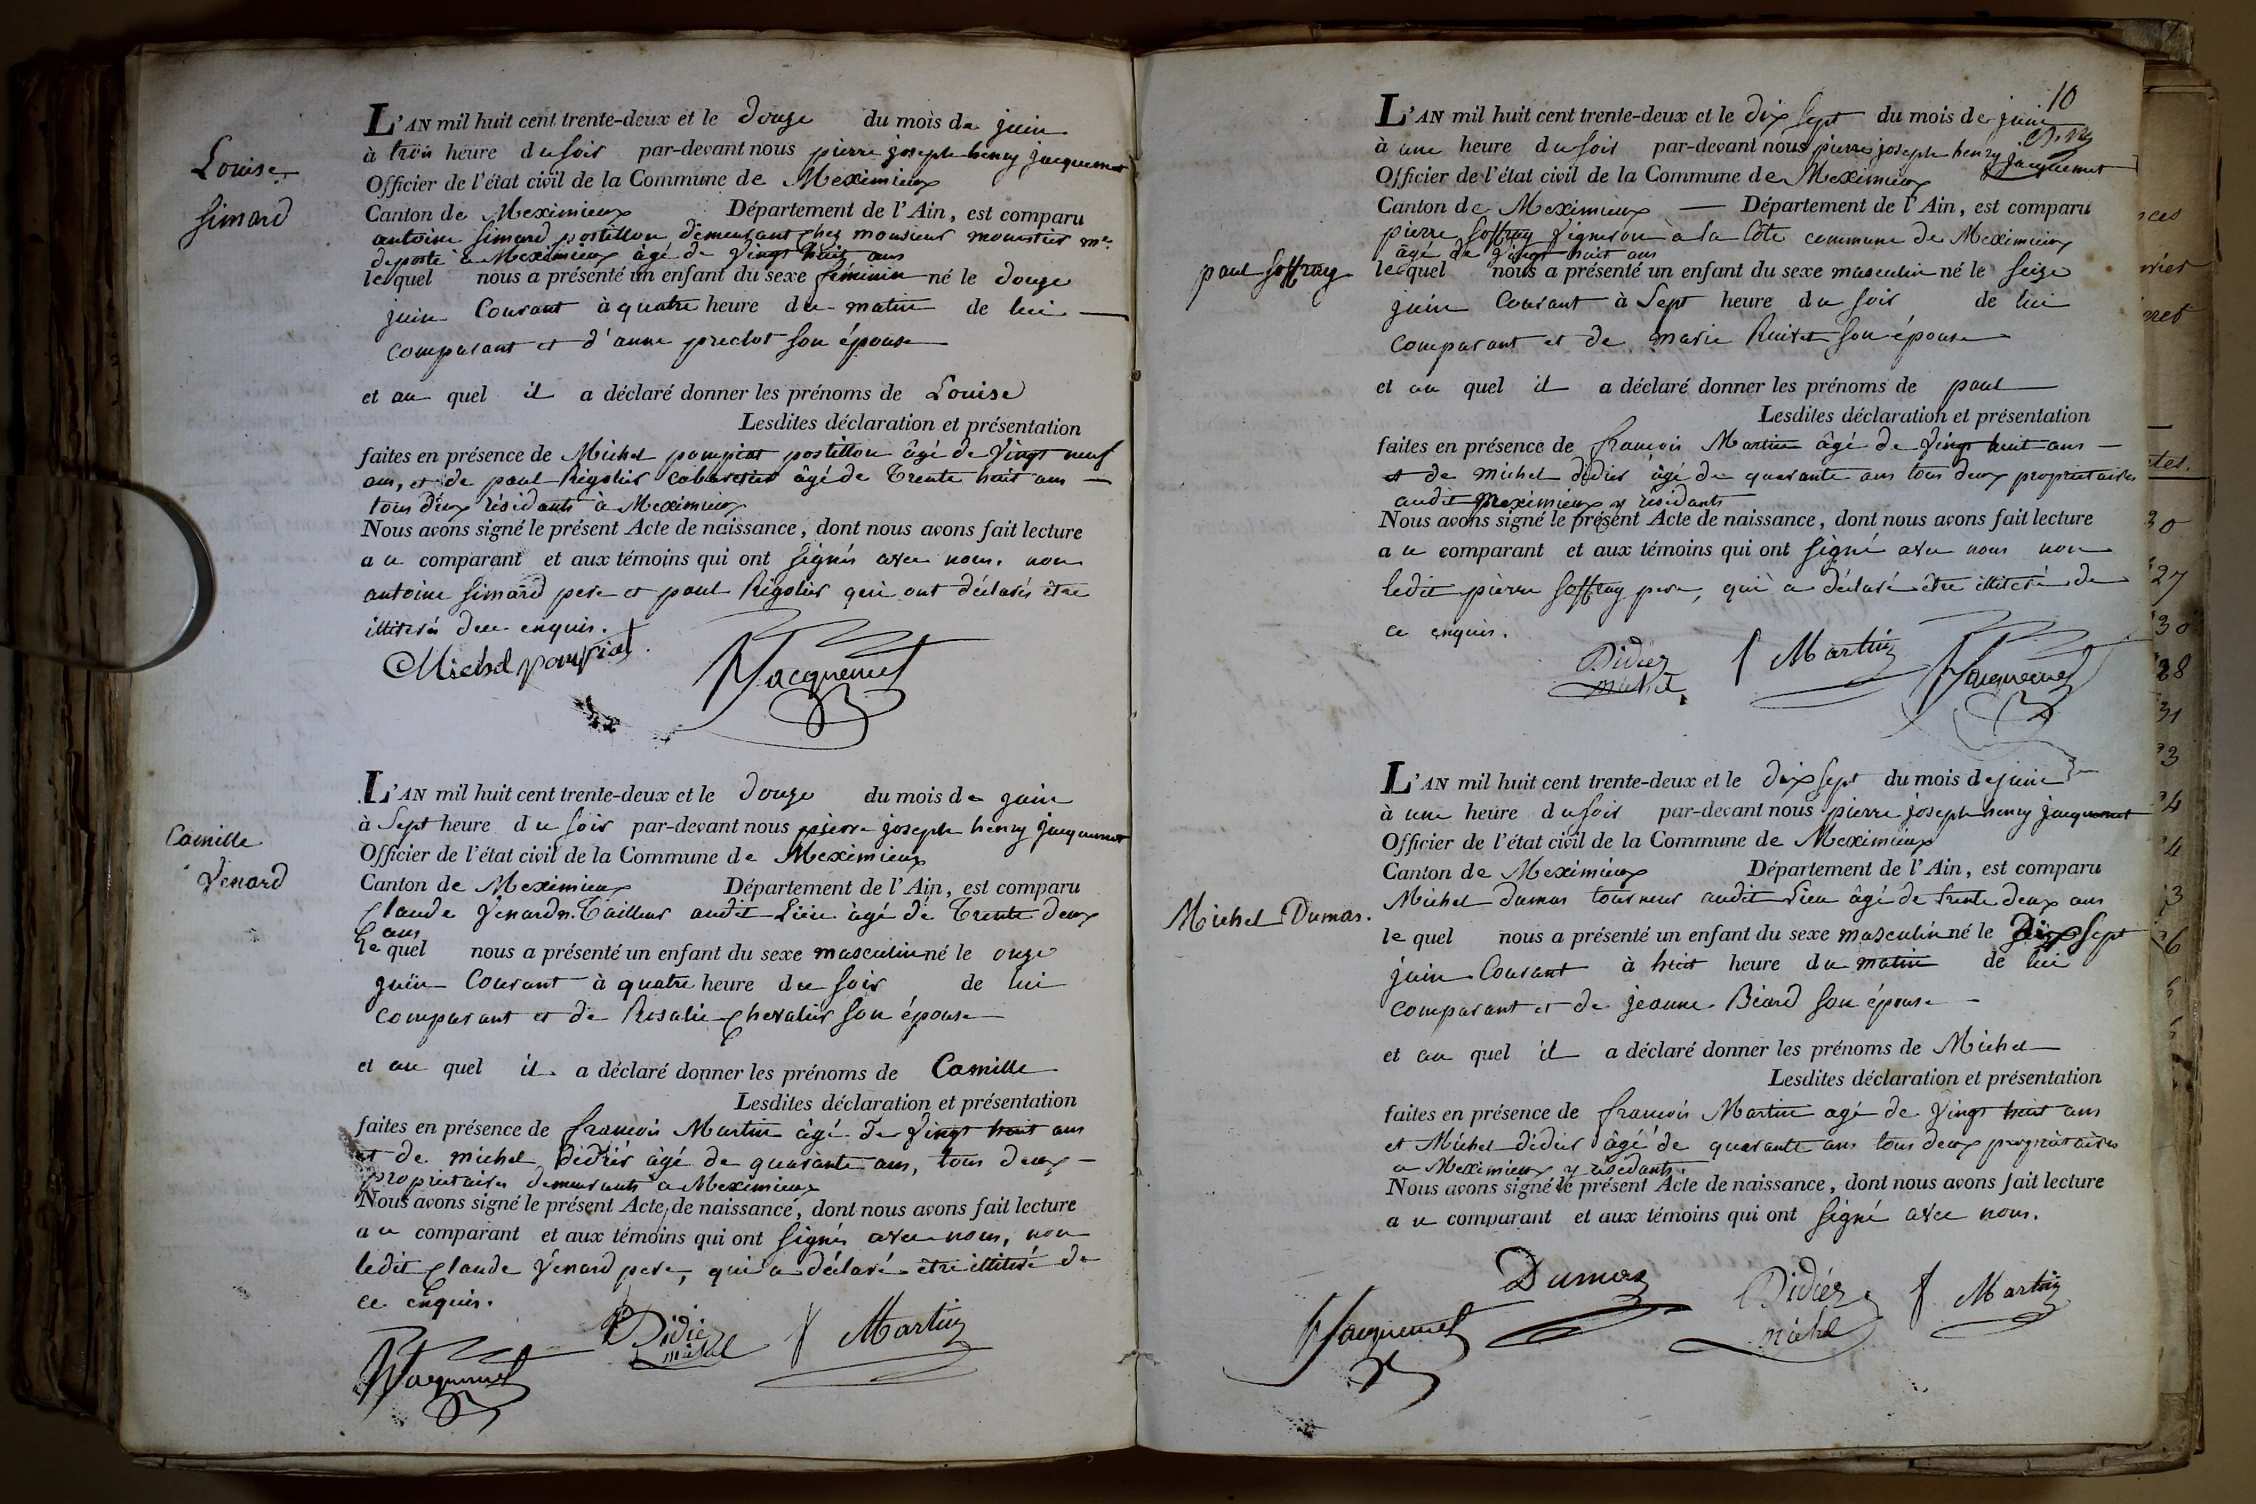 Louise
Simard
L'AN mil huit cent trente-deux et le douze du mois de juin
à trois heure du soir par-devant nous pierre joseph henry jacquemet
Officier de l'état civil de la Commune de Meximieux
Canton de Meximieux Département de l'Ain, est comparu
antoine Simard postillon demeurant chez monsieur monestier me.
de poste à Meximieux âgé de vingt huit ans
lequel nous a présenté un enfant du sexe féminin né le douze
juin Courant à quatre heure du matin de lui
comparant et d'anne preclot son épouse
et au quel il a déclaré donner les prénoms de Louise
Lesdites déclaration et présentation
faites en présence de Michel pompiat postillon âgé de vingt neuf
ans, et de paul Rigolier cabaretier âgé de trente huit ans
tous deux résidants à Meximieux
Nous avons signé le présent Acte de naissance, dont nous avons fait lecture
au comparant et aux témoins qui ont signés avec nous, non
antoine Simard pere et paul Rigolier qui ont déclarés être
illiterés de ce enquis.
Michel pompiat. Jacquemet
Camille
Venard
L'AN mil huit cent trente-deux et le douze du mois de juin
à Sept heure du soir par-devant nous pierre joseph henry jacquemet
Officier de l'état civil de la Commune de Meximieux
Canton de Meximieux Département de l'Ain, est comparu
Claude Venard Tailleur audit Lieu âgé de trente deux
ans
lequel nous a présenté un enfant du sexe masculin né le onze
juin Courant à quatre heure du soir de lui
comparant et de Rosalie Chevalier son épouse
et au quel il a déclaré donner les prénoms de Camille
Lesdites déclaration et présentation
faites en présence de françois Martin âgé de vingt huit ans
et de michel didier âgé de quarante ans, tous deux
propriétaires demeurants à Meximieux
Nous avons signé le présent Acte de naissance, dont nous avons fait lecture
au comparant et aux témoins qui ont signés avec nous, non
ledit Claude Venard pere, qui a déclaré être illiteré de
ce enquis.
Jacquemet Didier michel f Martin
10
paul Soffray
L'AN mil huit cent trente-deux et le dix sept du mois de juin
à une heure du soir par-devant nous pierre joseph henry jacquemet
Officier de l'état civil de la Commune de Meximieux
Canton de Meximieux — Département de l'Ain, est comparu
pierre Soffray vigneron à la Côte commune de Meximieux
âgé de vingt huit ans
lequel nous a présenté un enfant du sexe masculin né le seize
juin Courant à Sept heure du soir de lui
comparant et de marie Ruivet son épouse
et au quel il a déclaré donner les prénoms de paul
Lesdites déclaration et présentation
faites en présence de françois Martin âgé de vingt huit ans
et de michel didier âgé de quarante ans tous deux propriétaires
audit Meximieux y résidants
Nous avons signé le présent Acte de naissance, dont nous avons fait lecture
au comparant et aux témoins qui ont signé avec nous non
ledit pierre Soffray pere, qui a déclaré être illiteré de
ce enquis.
Didier michel f Martin Jacquemet
Michel Dumas.
L'AN mil huit cent trente-deux et le dix sept du mois de juin
à une heure du soir par-devant nous pierre joseph henry jacquemet
Officier de l'état civil de la Commune de Meximieux
Canton de Meximieux Département de l'Ain, est comparu
Michel Dumas tourneur audit Lieu âgé de trente deux ans
lequel nous a présenté un enfant du sexe masculin né le Dix sept
juin Courant à huit heure du matin de lui
comparant et de jeanne Béard son épouse
et au quel il a déclaré donner les prénoms de Michel
Lesdites déclaration et présentation
faites en présence de françois Martin agé de vingt huit ans
et Michel didier âgé de quarante ans tous deux propriétaires
a Meximieux y résidants.
Nous avons signé le présent Acte de naissance, dont nous avons fait lecture
au comparant et aux témoins qui ont signé avec nous.
Jacquemet Dumas Didier michel f Martin